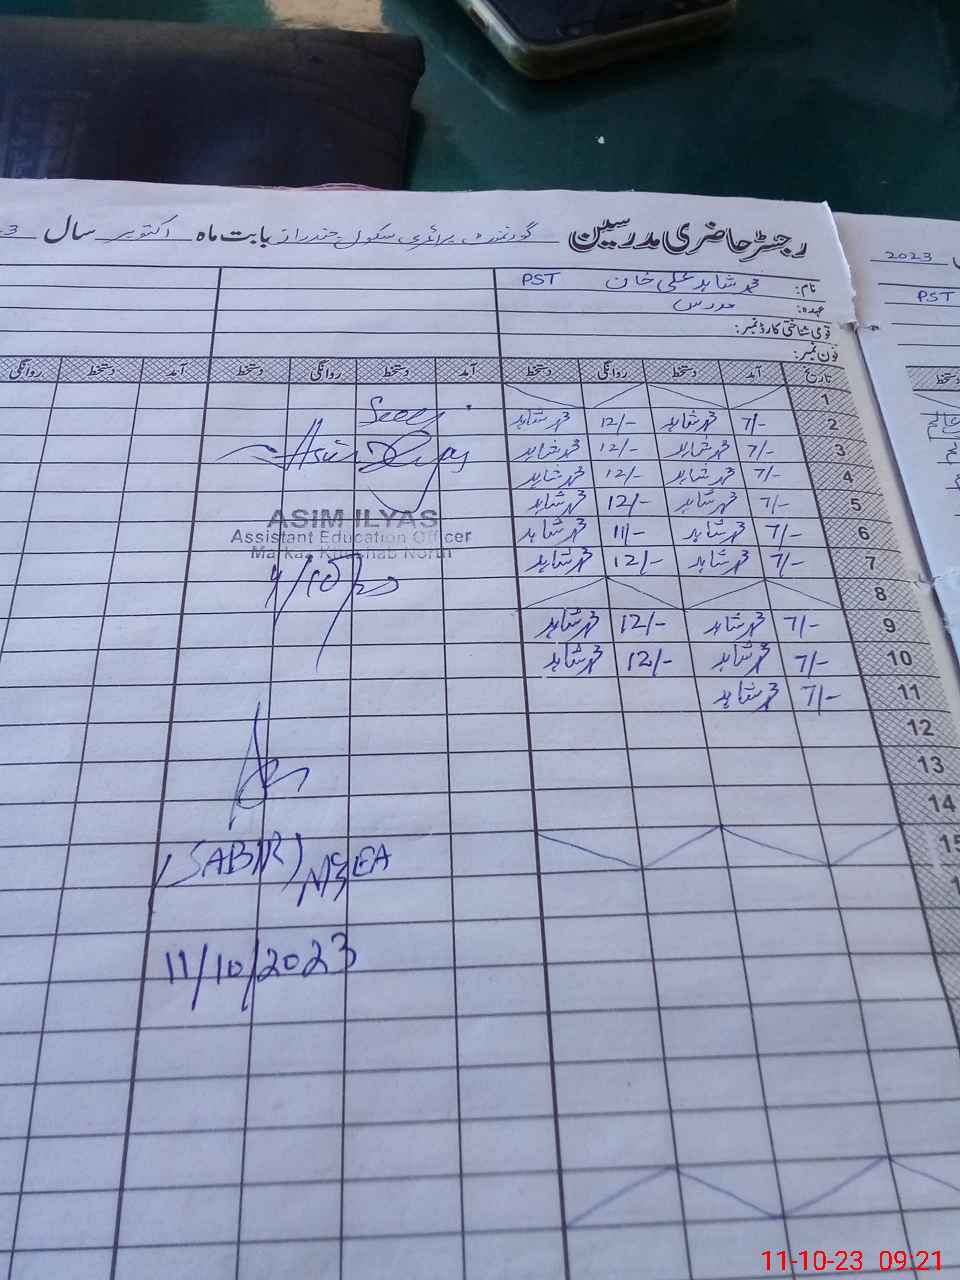 رجسٹر حاضری مدرسین گورنمنٹ پرائمری سکول بابت ماہ اکتوبر سال
نام: محمد شاہد علی خان PST
عہدہ: مدرس
قومی شناختی کارڈ نمبر:
فون نمبر:
تاریخ آمد دستخط روانگی دستخط آمد دستخط روانگی دستخط آمد دستخط روانگی
1
2 7/- محمد شاہد 12/- محمد شاہد
3 7/- محمد شاہد 12/- محمد شاہد
4 7/- محمد شاہد 12/- محمد شاہد
5 7/- محمد شاہد 12/- محمد شاہد
6 7/- محمد شاہد 11/- محمد شاہد
7 7/- محمد شاہد 12/- محمد شاہد
8
9 7/- محمد شاہد 12/- محمد شاہد
10 7/- محمد شاہد 12/- محمد شاہد
11 7/- محمد شاہد
12
13
14
15
Seen
Asim Ilyas
ASIM ILYAS
Assistant Education Officer
Markaz Khushab North
(SABIR)
11/10/2023
2023
PST
دستخط
11-10-23 09:21